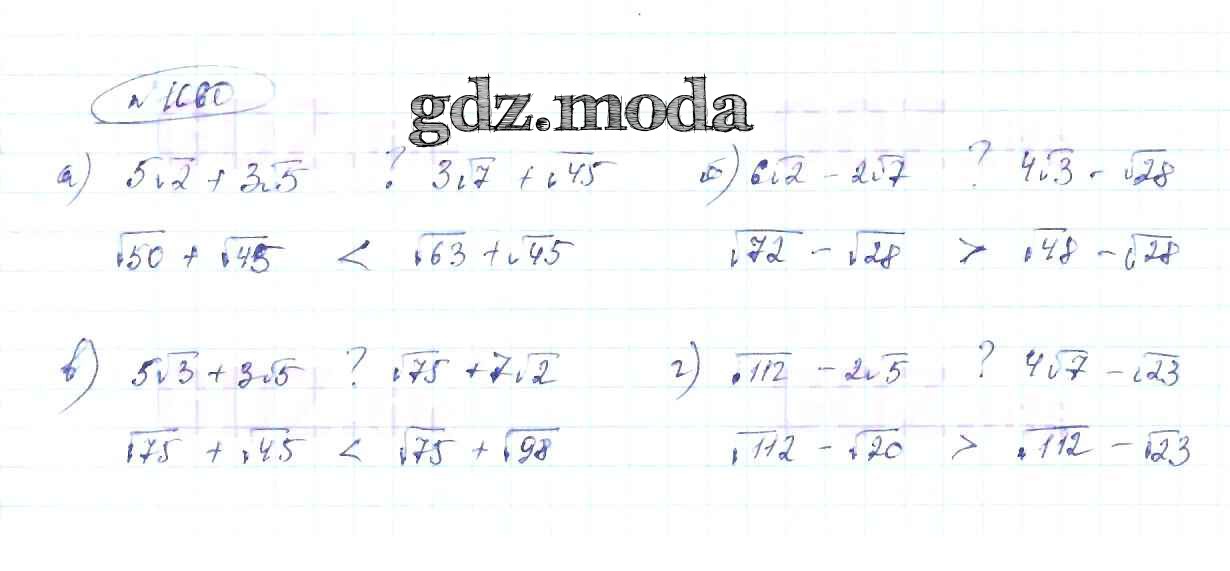 № 1660
gdz.moda
а) 5√2 + 3√5 ? 3√7 + √45
√50 + √45 < √63 + √45
б) 6√2 - 2√7 ? 4√3 - √28
√72 - √28 > √48 - √28
в) 5√3 + 3√5 ? √75 + 7√2
√75 + √45 < √75 + √98
г) √112 - 2√5 ? 4√7 - √23
√112 - √20 > √112 - √23